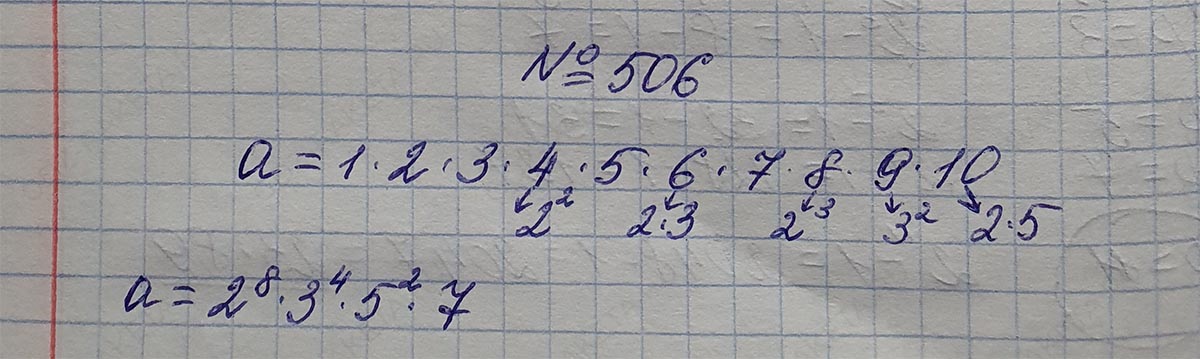 № 506
a = 1 · 2 · 3 · 4 · 5 · 6 · 7 · 8 · 9 · 10
2² 2·3 2³ 3² 2·5
a = 2⁸ · 3⁴ · 5² · 7